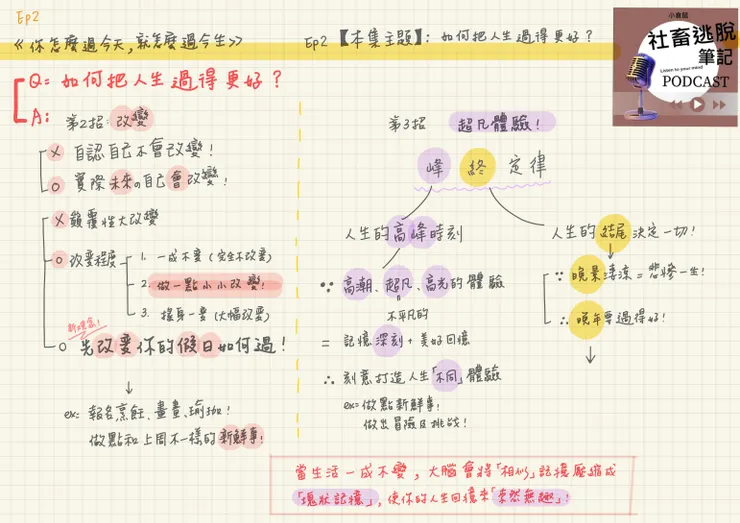 Ep2
《你怎麼過今天,就怎麼過今生》
Ep2【本集主題】: 如何把人生過得更好？
小魚話
社畜逃脫
筆記
Listen to your mind
PODCAST
Q= 如何把人生過得更好？
A:
第2招:改變
× 自認自己不會改變！
○ 實際未來の自己會改變！
× 顛覆性大改變
○ 改變程度
1. 一成不變 (完全不改變)
2. 做一點小小改變！
3. 搖身一變 (大幅改變)
新增念！
○ 先改變你的假日如何過！
↓
ex: 報名烹飪、畫畫、瑜珈！
做點和上周不一樣的新鮮事！
第3招 超凡體驗！
峰 終 定律
人生的高峰時刻
∵ 高潮、超凡、高光的體驗
不平凡的
= 記憶深刻 + 美好回憶
∴ 刻意打造人生「不同」體驗
ex= 做點新鮮事！
做出冒險及挑戰！
人生的結尾決定一切！
∵ 晚景淒涼 = 悲慘一生！
∴ 晚年要過得好！
↓
當生活一成不變，大腦會將「相似」記憶壓縮成
「塊狀記憶」，使你的人生回憶來「索然無趣」！